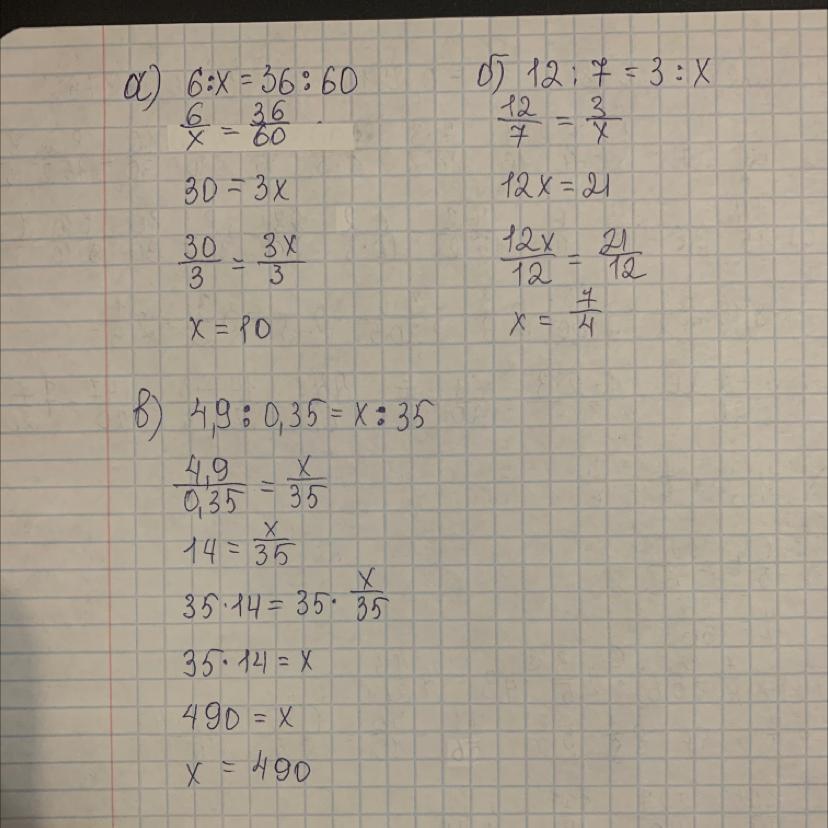 а) 6:x = 36:60
6/x = 36/60
30 = 3x
30/3 = 3x/3
x = 10
б) 12:7 = 3:x
12/7 = 3/x
12x = 21
12x/12 = 21/12
x = 7/4
в) 4,9:0,35 = x:35
4,9/0,35 = x/35
14 = x/35
35·14 = 35·x/35
35·14 = x
490 = x
x = 490